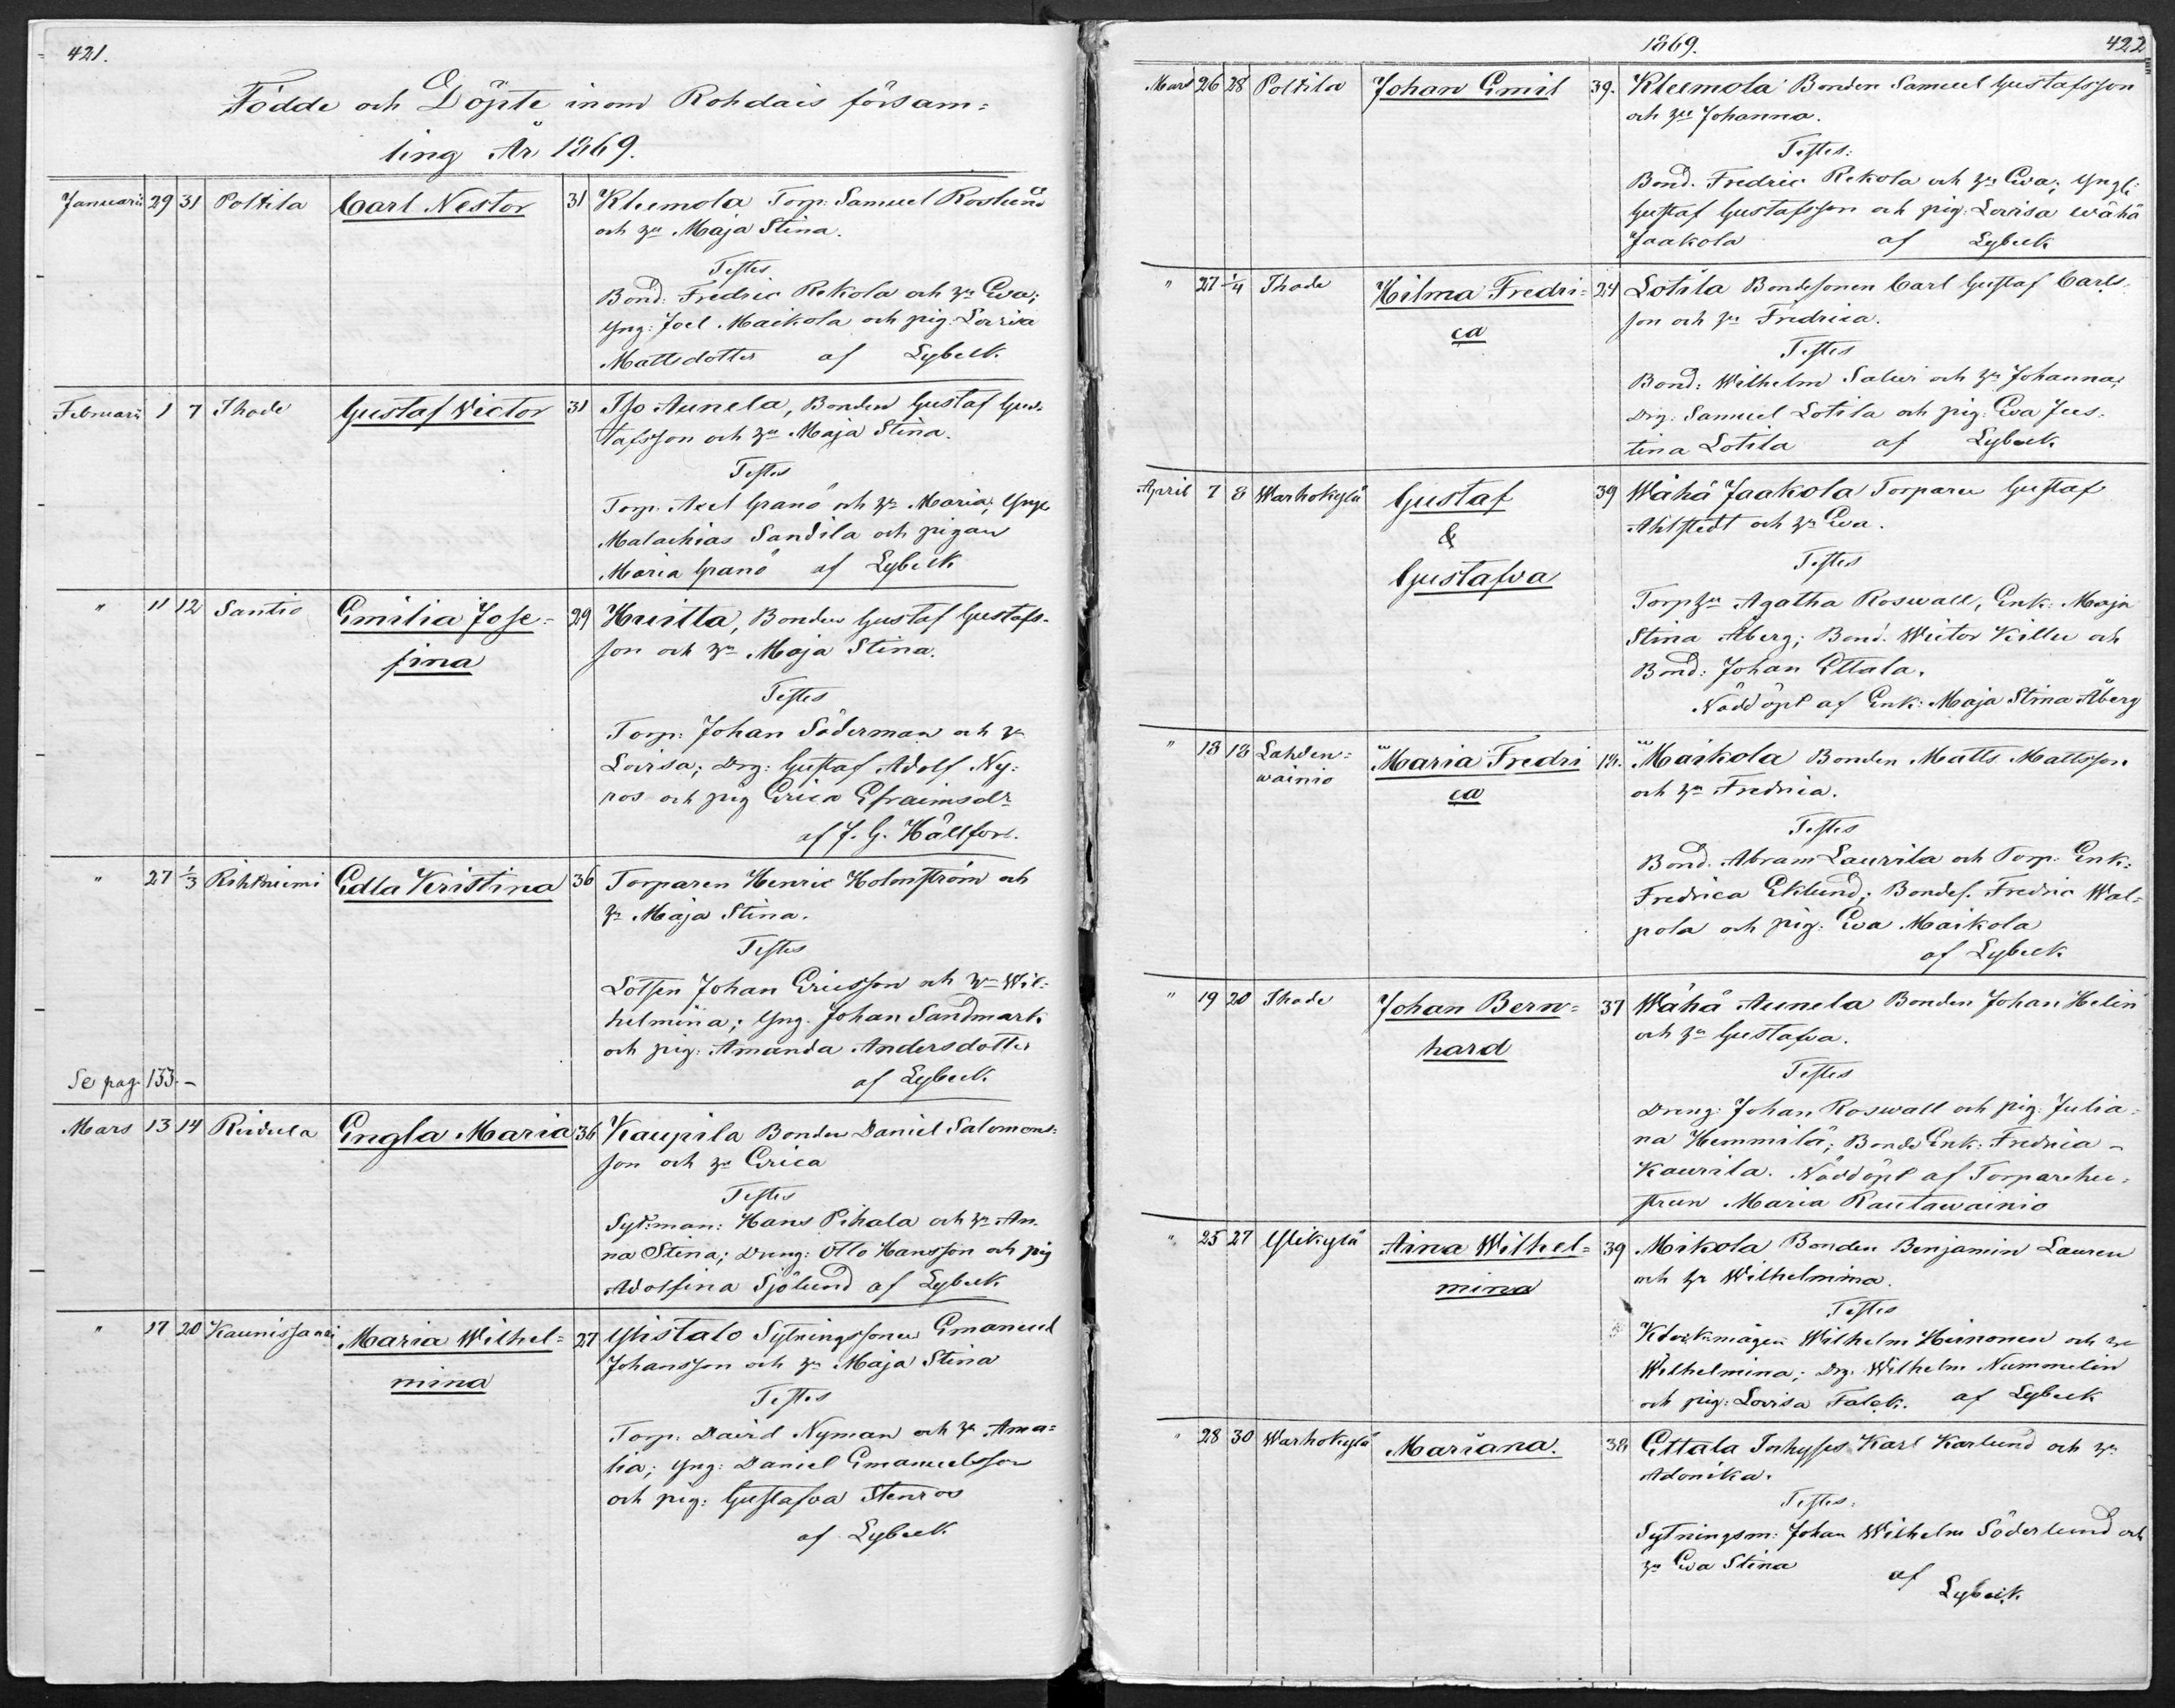 421.
Födde och Döpte inom Rohdais försam=
ling År 1869.
Januarii 29 31 Poltila Carl Nestor 31 Kleemola Torp: Samuel Roslund
och hu Maja Stina.
Testes
Bond: Fredric Rekola och hu Eva;
Yng: Joel Maikola och pig: Lovisa
Mattsdotter af Lybeck.
Februarii 1 7 Ihode Gustaf Victor 31 Iso Aunela, Bonden Gustaf Gus-
tafsson och hu Maja Stina.
Testes
Torp. Axel Granö och hu Maria; Yngl
Malachias Sandila och pigan
Maria Granö af Lybeck
" 11 12 Santio Emilia Jose= 29 Huitla, Bonden Gustaf Gustafs-
fina son och hu Maja Stina.
Testes
Torp: Johan Söderman och hu
Lovisa; Drg: Gustaf Adolf Ny:
ros och pig Erica Efraimsdr
af J. G. Hällfors.
" 27 1/3 Rihtniemi Edla Kristina 36 Torparen Henric Holmström och
hu Maja Stina.
Testes
Lotsen Johan Ericsson och hu Wil=
helmina; Yng. Johan Sandmark
och pig: Amanda Andersdotter
Se pag. 133.- af Lybeck.
Mars 13 14 Reidula Engla Maria 36 Kaupila Bonden Daniel Salomons=
son och hu Erica
Testes
Syt:man: Hans Pihala och hu An-
na Stina; Dreng: Otto Hansson och pig
Adolfina Sjölund af Lybeck
" 17 20 Kaunissaari Maria Wilhel= 27 Ylistalo Sytningssonen Emanuel
mina Johansson och hu Maja Stina
Testes
Torp: David Nyman och hu Ama=
lia; Yng: Daniel Emanuelsson
och pig: Gustafva Stenros
af Lybeck
1869. 422
Mars 26 28 Poltila Johan Emil 39. Kleemola Bonden Samuel Gustafsson
och hu Johanna.
Testes:
Bond. Fredric Rekola och hu Eva; Yngl:
Gustaf Gustafsson och pig: Lovisa Wähä
Jaakola af Lybeck
" 27 1/4 Ihode Hilma Fredri= 24 Lotila Bondesonen Carl Gustaf Carls-
ca son och hu Fredrica.
Testes
Bond: Wilhelm Salwi och hu Johanna;
Drg: Samuel Lotila och pig: Eva Jus=
tina Lotila af Lybeck
April 7 8 Warhokylä Gustaf 39 Wähä Jaakola Torparen Gustaf
& Ahlstedt och hu Eva.
Gustafva Testes
Torphu Agatha Roswall, Enk: Maja
Stina Åberg; Bond. Wictor Killu och
Bond: Johan Ettala.
Nöddöpt af Enk: Maja Stina Åberg
" 13 18 Lahden= Maria Fredri 18. Maikola Bonden Matts Mattsson
wainio ca och hu Fredrica.
Testes
Bond. Abram Laurila och Torp: Enk:
Fredrica Eklund; Bondes. Fredric Wal=
pola och pig: Eva Maikola
af Lybeck
" 19 20 Ihode Johan Bern= 37 Wähä Aunela Bonden Johan Helin
hard och hu Gustafva.
Testes
Dreng: Johan Roswall och pig: Julia=
na Hemmilä; Bonde Enk: Fredrica -
Kaurila. Nöddöpt af Torparehu=
strun Maria Rautawainio
" 25 27 Ylikylä Aina Wilhel= 39 Mikola Bonden Benjamin Lauren
mina och hu Wilhelmina.
Testes
Wilhelm Heinonen och hu
Wilhelmina; Drg. Wilhelm Nummelin
och pig: Lovisa Falck. af Lybeck
" 28 30 Warhokylä Mariana. 38 Ettala Inhyses Karl Karlund och hu
Adonika.
Testes:
Sytningsm: Johan Wilhelm Söderlund och
hu Eva Stina af
Lybeck